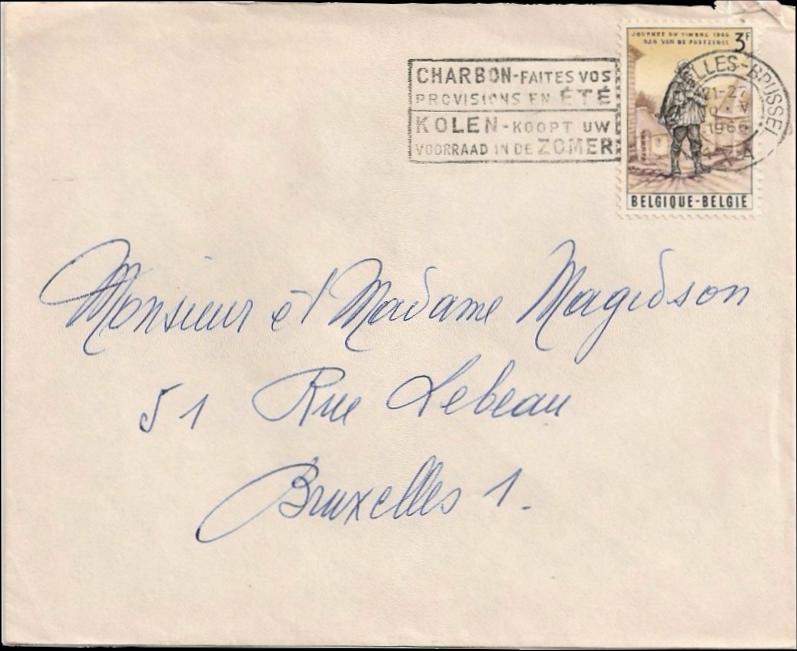 JOURNÉE DU TIMBRE 1966
DAG VAN DE POSTZEGEL
3F
CHARBON-FAITES VOS
PROVISIONS EN ÉTÉ
KOLEN-KOOPT UW
VOORRAAD IN DE ZOMER
ELLES-BRUSSEL
21-22
V
1966
A
BELGIQUE-BELGIE
Monsieur et Madame Magidson
51 Rue Lebeau
Bruxelles 1.